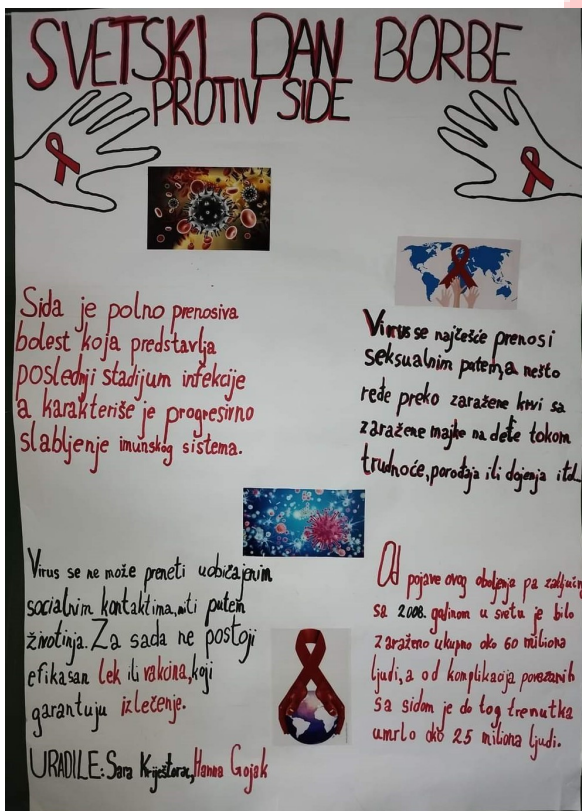 SVETSKI DAN BORBE
PROTIV SIDE
Sida je polno prenosiva
bolest koja predstavlja
poslednji stadijum infekcije
a karakteriše je progresivno
slabljenje imunskog sistema.
Virus se najčešće prenosi
seksualnim putem, a nešto
ređe preko zaražene krvi sa
zaražene majke na dete tokom
trudnoće, porođaja ili dojenja itd.
Virus se ne može preneti uobičajenim
socialnim kontaktima, niti putem
životinja. Za sada ne postoji
efikasan lek ili vakcina, koji
garantuju izlečenje.
Od pojave ovog obolenja pa
sa 2008. godinom u svetu je bilo
zaraženo ukupno oko 60 miliona
ljudi, a od komplikacija povezanih
sa sidom je do tog trenutka
umrlo oko 25 miliona ljudi.
URADILE: Sara Kriještorac, Hanna Gojak